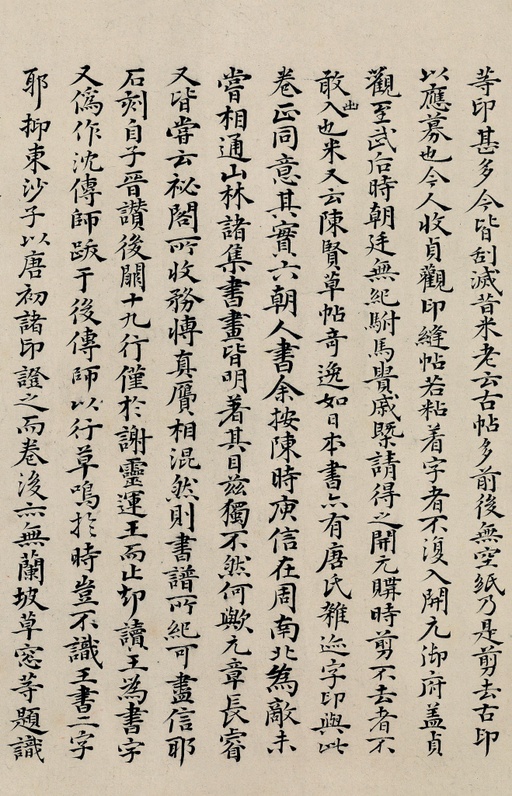 等印甚多今皆刮滅昔米老云古帖多前後無空紙乃是剪去古印
以應募也今人收貞觀印縫帖若粘着字者不復入開元御府蓋貞
觀至武后時朝廷無紀駙馬貴戚槩請得之開元購時剪不去者不
敢出入也米又云陳賢草帖奇逸如日本書亦有唐氏雜迹字印與此
卷正同意其實六朝人書余按陳時庾信在周南北為敵未
嘗相通山林諸集書畫皆明著其目茲獨不然何歟元章長睿
又皆嘗云祕閣所收務博真贗相混然則書譜所紀可盡信耶
石刻自子晉讚後闕十九行僅於謝靈運王而止却讀王為書字
又偽作沈傳師跋于後傳師以行草鳴於時豈不識王書二字
耶抑東沙子以唐初諸印證之而卷後亦無蘭坡草窓等題識